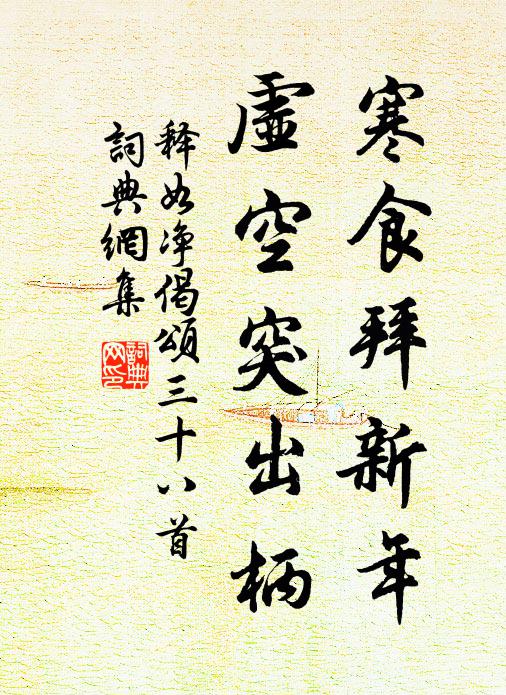 寒食拜新年
虛空突出柄
释如净偈頌三十八首
詞典網集
詞典网印